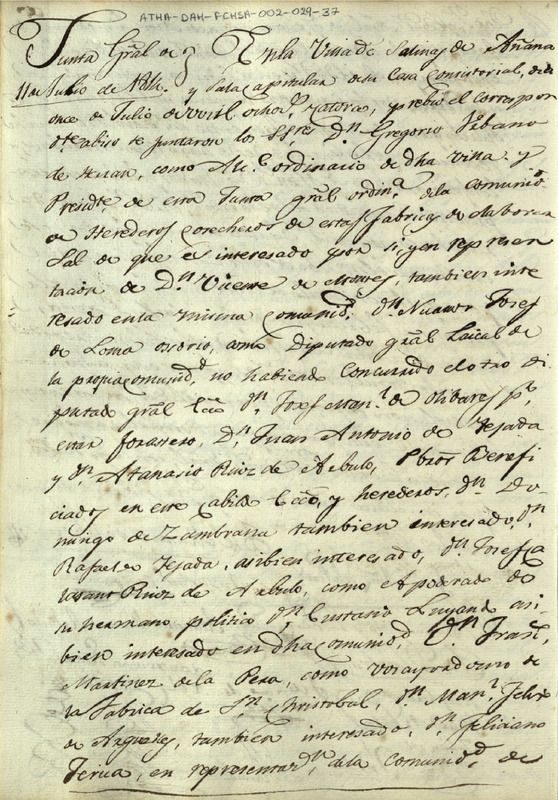 ATHA-DAH-FCHSA-002-029-37
Junta Gral de } En la Villa de Salinas de Añana
11 de Julio de 1814. y Sala capitular de su Casa Consistorial, dia
once de Julio de mil ochos. catorce, y prebio el correspon
dte abiso se juntaron los SSres Dn Gregorio
de como Alce ordinario de dha villa y
Presidte de esta Junta gral ordina de la comunid
de Herederos cosecheros de estas fabricas de elaborar
Sal de que es interesado por si, y en represen
tación de Dn Vicente de Montes, tambien inte
resado en la misma comunidd, Dn Nicanor Josef
de Loma osorio, como Diputado gral Laical de
la propia comunidd, no habiendo concurrido el otro di
putado gral Ecco Dn Josef Manl de Olibares pr
estar forastero, Dn Juan Antonio de Tejada
y Dn Atanasio Ruiz de Arbulo, Pbros Benefi
ciados en este cabildo Ecco, y herederos, Dn Do
mingo de Zambrana tambien interesado, Dn
Rafael de Tejada, asibien interesado, Dn Josef Ca
Ruiz de Arbulo, como Apoderado de
su hermano politico Dn Eustasio Luyando asi
bien interesado en dha comunidd, Dn Franco
Martinez de la Pera, como mayordomo de
la Fabrica de Sn Christobal, Dn Manl Felix
de tambien interesado, Dn Feliciano
en representacn de la comunidd de